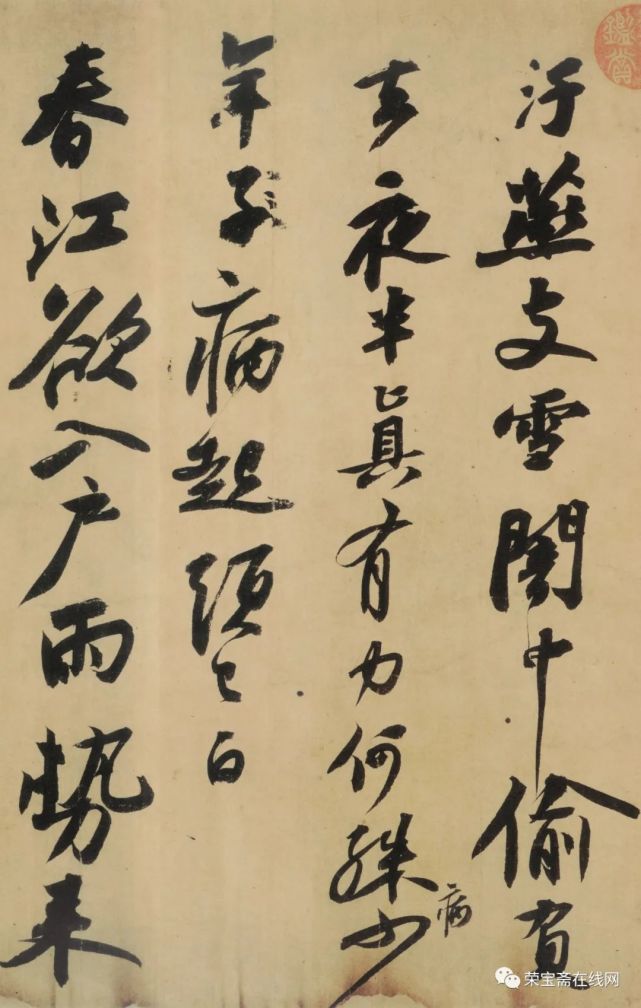 汙燕支雪闇中偷負
去夜半真有力何殊少
病
年子病起頭已白
春江欲入戶雨勢來
荣宝斋在线网